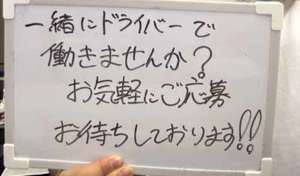 一緒にドライバーで
働きませんか?
お気軽にご応募
お待ちしております!!